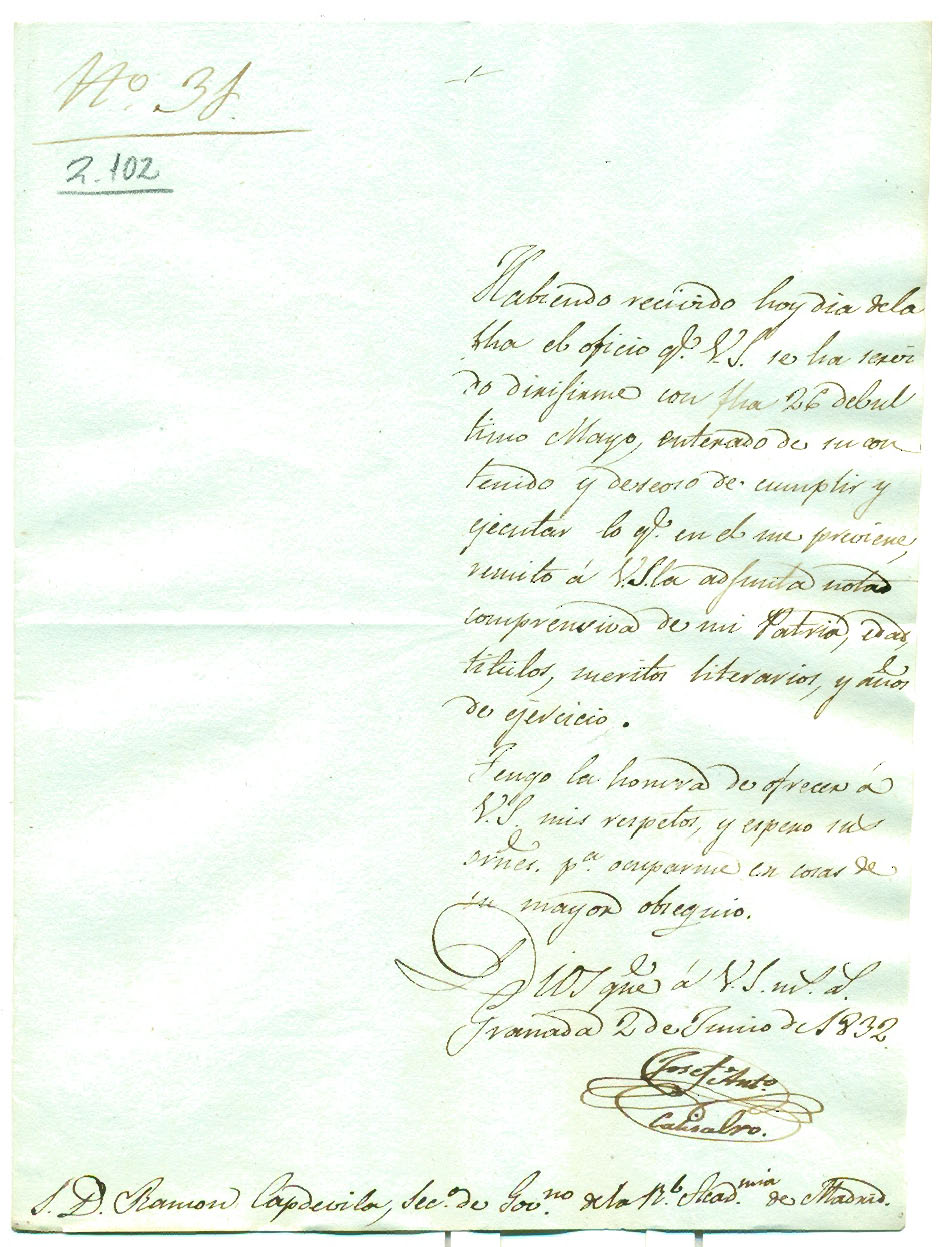 Nº. 31.
2.102
Habiendo recivido hoy dia de la
fha el oficio qe. V.S. se ha servi
do dirigirme con fha 26 del ul
timo Mayo, enterado de su con
tenido y deseoso de cumplir y
ejecutar lo qe. en el me previene,
remito á V.S. la adjunta nota
comprensiva de mi Patria, edad,
titulos, meritos literarios, y años
de ejercicio.
Tengo la honrra de ofrecer á
V.S. mis respetos, y espero sus
ornes. pa. ocuparme en cosas de
su mayor obsequio.
Dios gue á V.S. ms. as.
Granada 2 de Junio de 1832.
Josef Anto.
S. D. Ramon Capdevila, Seco. de Govno. de la Rl. Academia de Madrid.